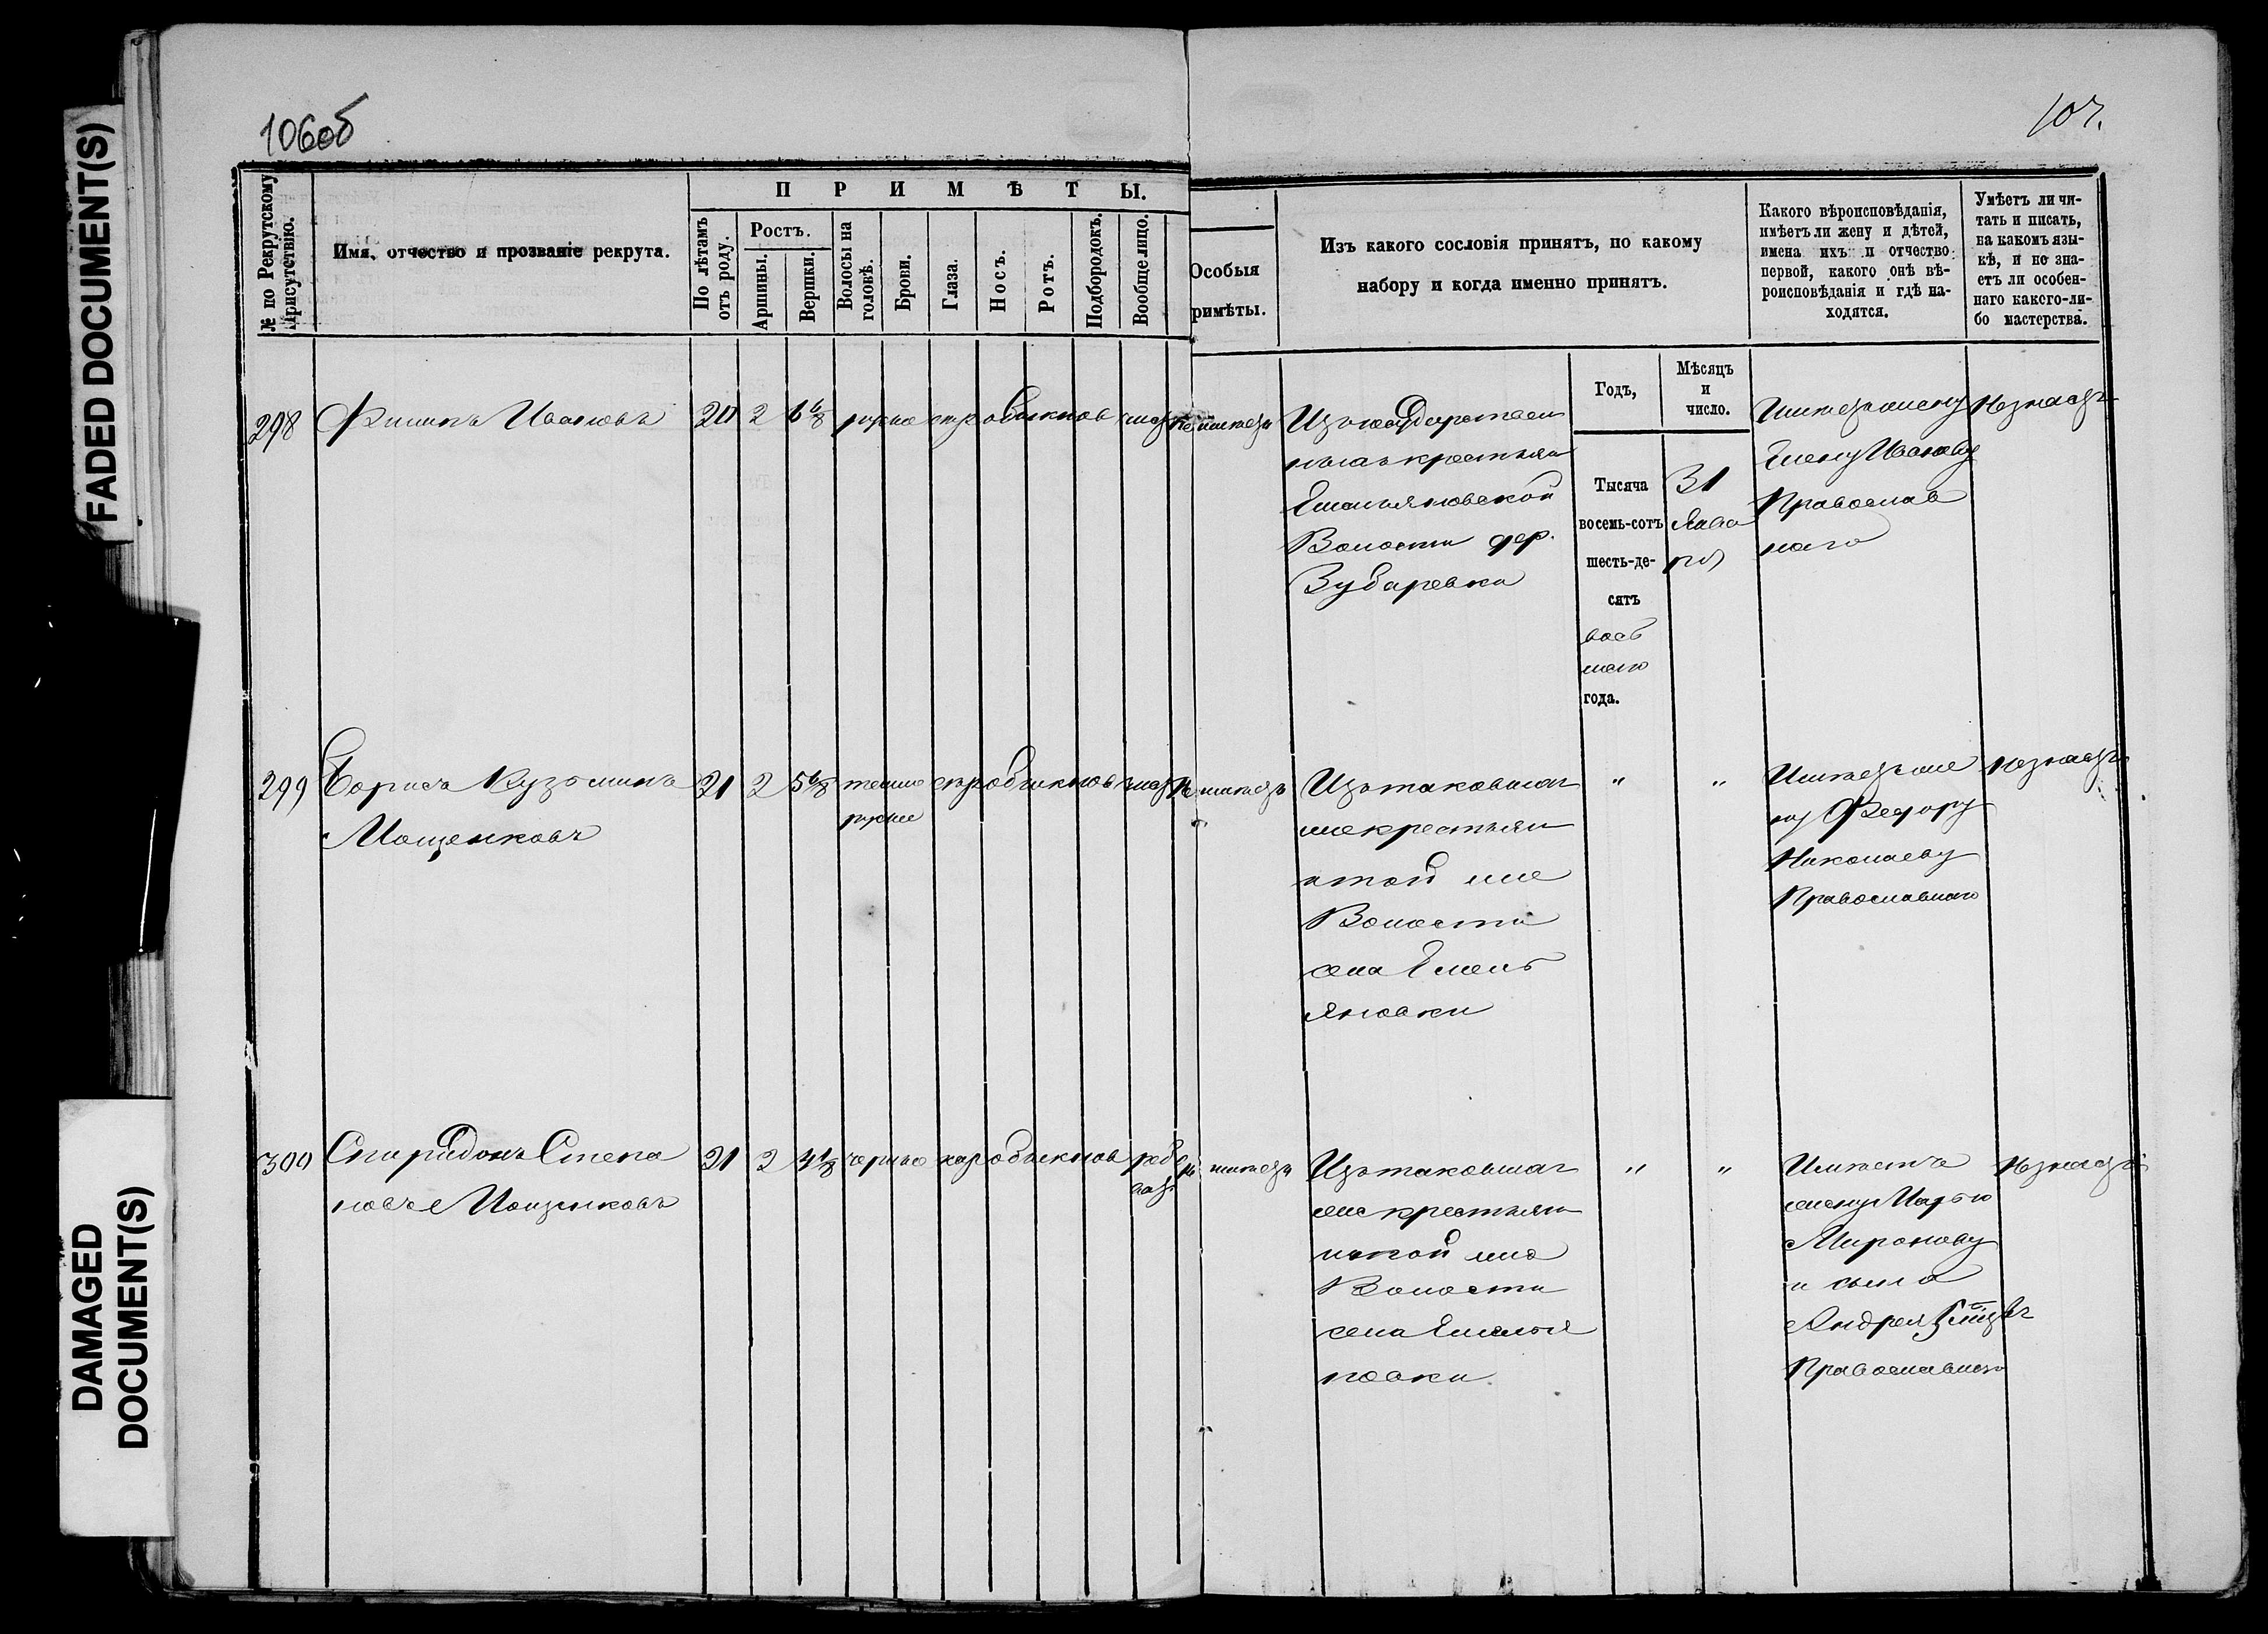 FADED DOCUMENT(S)
DAMAGED
DOCUMENT(S)
106об
107.
№ по Рекрутскому
Присутствію.
Имя, отчество и прозваніе рекрута.
ПРИМѢТЫ.
По лѣтамъ
отъ роду.
Ростъ.
Аршины.
Вершки.
Волосы на
головѣ.
Брови.
Глаза.
Носъ.
Ротъ.
Подбородокъ.
Вообще лицо.
Особыя
римѣты.
Изъ какого сословія принятъ, по какому
набору и когда именно принятъ.
Какого вѣроисповѣданія,
имѣетъ ли жену и дѣтей,
имена ихъ и отчество
первой, какого онѣ вѣ-
роисповѣданія и гдѣ на-
ходятся.
Умѣетъ ли чи-
тать и писать,
на какомъ язы-
кѣ, и не зна-
етъ ли особен-
наго какого-ли-
бо мастерства.
Годъ,
Мѣсяцъ
и
число.
298 Филипъ Ивановъ 20 2 6 6/8 русые сѣр обыкнов чист не имѣетъ
Изъ государствен
ныхъ крестьян
Емельяновской
Волости дер.
Зубаревка
Тысяча
восемь-сотъ
шесть-де-
сятъ
вось
маго
года.
31
Янва
ря
Имѣетъ жену
Елену Иванову
Православ
наго
Незнаетъ
299 Борисъ Кузьминъ
Мощенковъ
21 2 5 6/8 темно
русые
сѣр обыкнов чист не имѣетъ
Изъ таковыхъ
же крестьян
и той же
Волости
села Емель
яновки
" "
Имѣетъ же
ну Федору
Николаеву
Православнаго
Незнаетъ
300 Спиридонъ Степа
новъ Мощенковъ
21 2 4 1/8 черные кар обыкнов ряб
Изъ таковыхъ
же крестьян
и той же
Волости
села Емелья
новки
" "
Имѣетъ
жену Марью
Миронову
и сына
Андрея
Православнаго
Незнаетъ